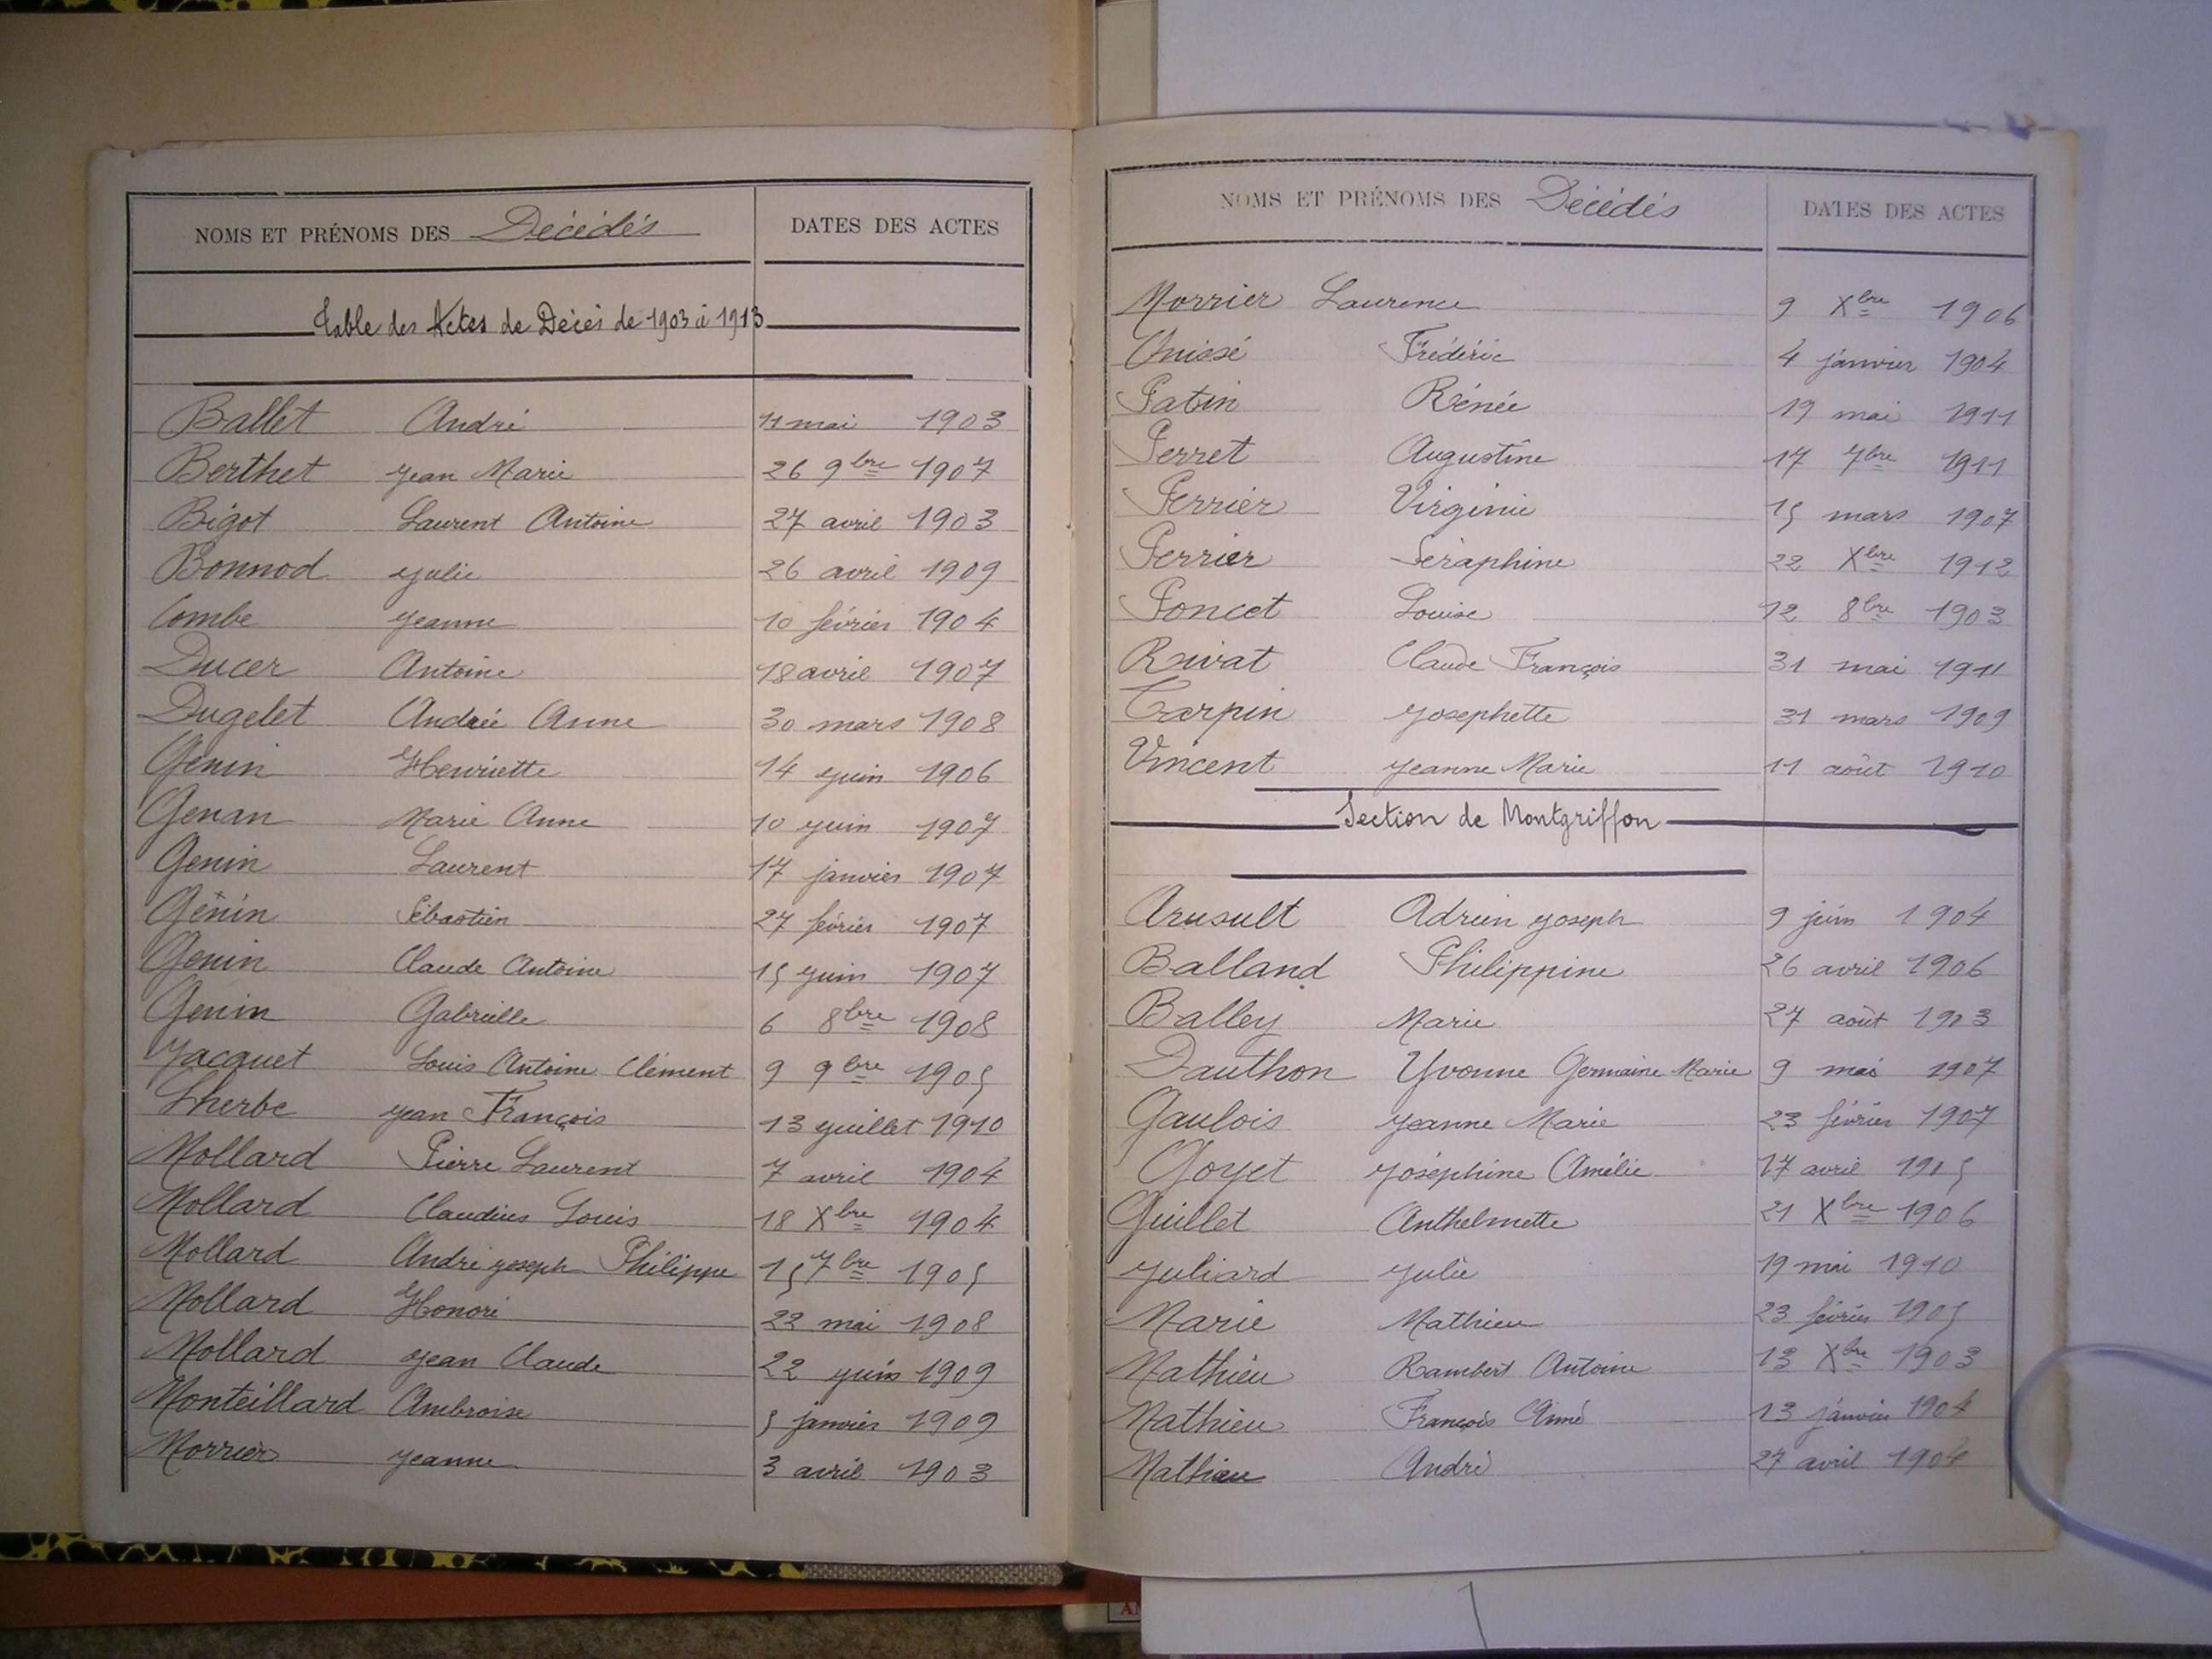 NOMS ET PRÉNOMS DES Décédés DATES DES ACTES
Table des Actes de Décès de 1903 à 1913
Ballet André 11 mai 1903
Berthet Jean Marie 26 9bre 1907
Bigot Laurent Antoine 27 avril 1903
Bonnod Julie 26 avril 1909
Combe Jeanne 10 février 1904
Ducer Antoine 18 avril 1907
Dugelet Andrée Anne 30 mars 1908
Genin Henriette 14 juin 1906
Genan Marie Anne 10 juin 1907
Genin Laurent 17 janvier 1907
Génin Sébastien 27 février 1907
Genin Claude Antoine 15 juin 1907
Genin Gabrielle 6 8bre 1908
Jacquet Louis Antoine Clément 9 9bre 1905
Lherbe Jean François 13 juillet 1910
Mollard Pierre Laurent 7 avril 1904
Mollard Claudius Louis 18 Xbre 1904
Mollard André Joseph Philippe 15 7bre 1905
Mollard Honoré 22 mai 1908
Mollard Jean Claude 22 juin 1909
Monteillard Ambroise 5 janvier 1909
Morrier Jeanne 3 avril 1903
NOMS ET PRÉNOMS DES Décédés DATES DES ACTES
Morrier Laurence 9 Xbre 1906
Frédéric 4 janvier 1904
Patin Rénée 19 mai 1911
Perret Augustine 17 7bre 1911
Perrier Virginie 15 mars 1907
Perrier Séraphine 22 Xbre 1912
Poncet Louise 12 8bre 1903
Rivat Claude François 31 mai 1911
Tarpin Josephette 31 mars 1909
Vincent Jeanne Marie 11 août 1910
Section de Montgriffon
Adrien Joseph 9 juin 1904
Balland Philippine 26 avril 1906
Balley Marie 27 août 1903
Dauthon Yvonne Germaine Marie 9 mai 1907
Gaulois Jeanne Marie 23 février 1907
Goyet Joséphine Amélie 17 avril 1905
Guillet Anthelmette 21 Xbre 1906
Juliard Julie 19 mai 1910
Marie Mathieu 23 février 1905
Mathieu Rambert Antoine 13 Xbre 1903
Mathieu François Aimé 13 janvier 1904
Mathieu André 27 avril 1904